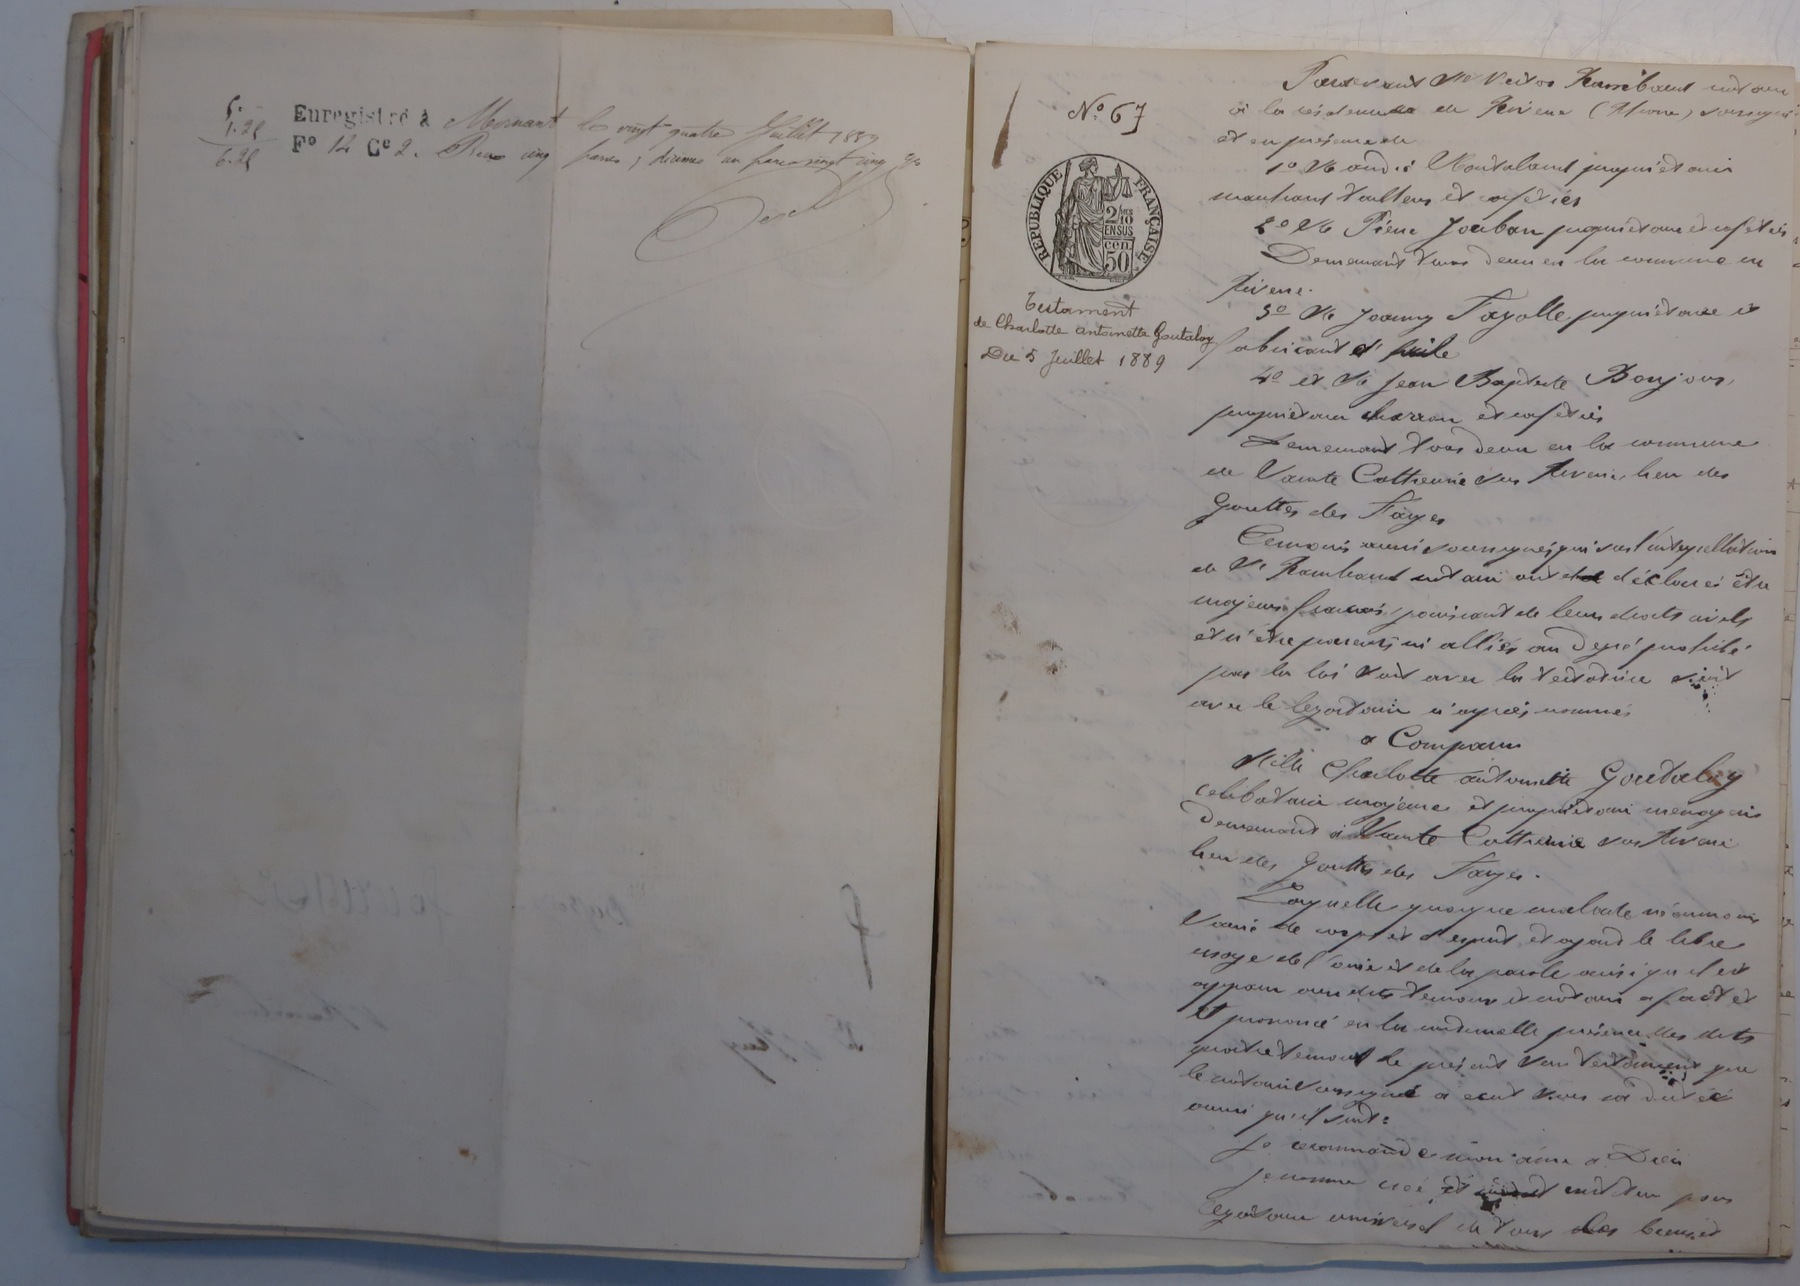 5.-
1.25
6.25
Enregistré à Mornant le vingt quatre Juillet 1889
F° 12 C° 2. Reçu cinq francs, décimes un franc vingt cinq
N° 67
RÉPUBLIQUE FRANÇAISE
2/10 EN SUS
cen. 50
Testament
de Charlotte Antoinette Goutaloy
Du 5 Juillet 1889
Pardevant Me Victor Rambaud notaire
à la résidence de Riverie (Rhône) soussigné
et en présence de
1° Mr propriétaire
et cafetier
2° Mr Pierre Jouban propriétaire et cafetier
Demeurant tous deux en la commune de
Riverie.
3° Mr Joanny Fayolle propriétaire et
fabricant d'huile
4° et Mr Jean Baptiste Bonjour,
propriétaire charron et cafetier
Demeurant tous deux en la commune
de Sainte Catherine sur Riverie, lieu des
Gouttes des Farges
Témoins aussi soussignés qui sur l'interpellation
de Me Rambaud notaire ont déclaré être
majeurs français, jouissant de leurs droits civils
et n'être parents ni alliés au degré prohibé
par la loi soit avec la testatrice soit
avec le légataire ci après nommé
a Comparu
Mlle Charlotte Antoinette Goutaloy
célibataire majeure et propriétaire ménagère
demeurant à Sainte Catherine sur Riverie
lieu des Gouttes des Farges.
Laquelle quoique malade néanmoins
saine de corps et d'esprit, et ayant le libre
usage de l'ouïe et de la parole ainsi qu'il est
apparu aux dits témoins et notaire a fait et
et prononcé en la mutuelle présence des dits
le présent son testament que
le notaire soussigné a écrit sous sa dictée
ainsi qu'il suit:
Je recommande mon âme à Dieu
Je nomme créé et institue pour
légataire universel de tous les biens et